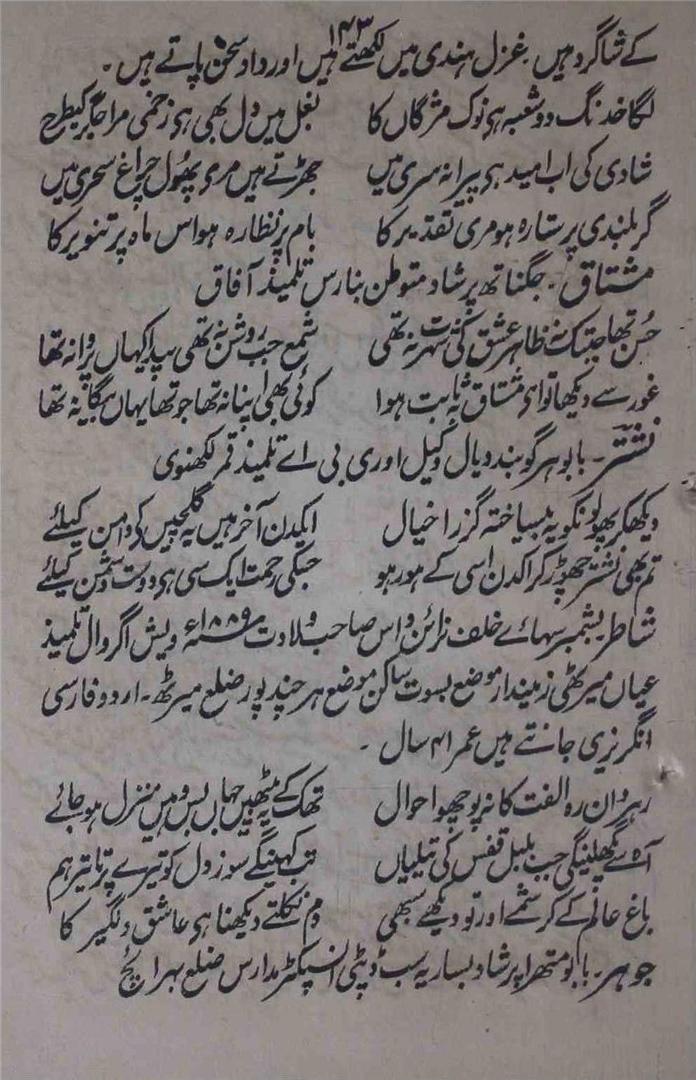 ۱۴۳
کے شاگرد ہیں غزل ہندی میں لکھتے ہیں اور داد سخن پاتے ہیں۔
لگا خدنگ دو شعبہ ہی نوک مژگاں کا بغل میں دل بھی ہی زخمی مرا جگر کیطرح
شادی کی اب امید ہی پیرانہ سری میں جھڑتے ہیں مری پھول چراغ سحری میں
گر بلندی پر ستارہ ہو مری تقدیر کا بام پر نظارہ ہو اس ماہ پر تنویر کا
مشتاق۔ جگناتھ پرشاد متوطن بنارس تلمیذ آفاق
حُسن تھا جبتک نہ ظاہر عشق کی شہرت نہ تھی شمع جب روشن نہ تھی پیدا کہاں پروانہ تھا
غور سے دیکھا تو ای مشتاق یہ ثابت ہوا کوئی بھی اپنا نہ تھا جو تھا یہاں بیگانہ تھا
نشتر۔ بابو ہر گوبند دیال وکیل اوری بی اے تلمیذ قمر لکھنوی
دیکھکر پھولونکو یہ بیساختہ گزرا خیال ایکدن آخر ہیں یہ گلچیں کی دامن کیلئے
تم بھی نشتر چھوڑ کر اکدن اسی کے ہو رہو جسکی رحمت ایک سی ہی دوست و دشمن کیلئے
شاطر بشمبر سہائے خلف نرائن داس صاحب ولادت ۱۸۸۹ء ویش اگروال تلمیذ
عیاں میرٹھی زمیندار موضع بسوت ساکن موضع ہر چند پور ضلع میرٹھ۔ اردو فارسی
انگریزی جانتے ہیں عمر ۴۱ سال ۔
رہروان رہ الفت کا نہ پوچھو احوال تھک کے یہ بیٹھیں جہاں بس وہیں منزل ہو جائے
آہ سے پگھلینگی جب بلبل قفس کی تیلیاں تب کہینگے سوز دل کو تیرے پر تاثیر ہم
باغ عالم کے کرشمے اور تو دیکھے سبھی دم نکلتے دیکھنا ہی عاشق دلگیر کا
جوہر۔ بابو متھرا پرشاد بساریہ سب ڈپٹی انسپکٹر مدارس ضلع بہرائچ